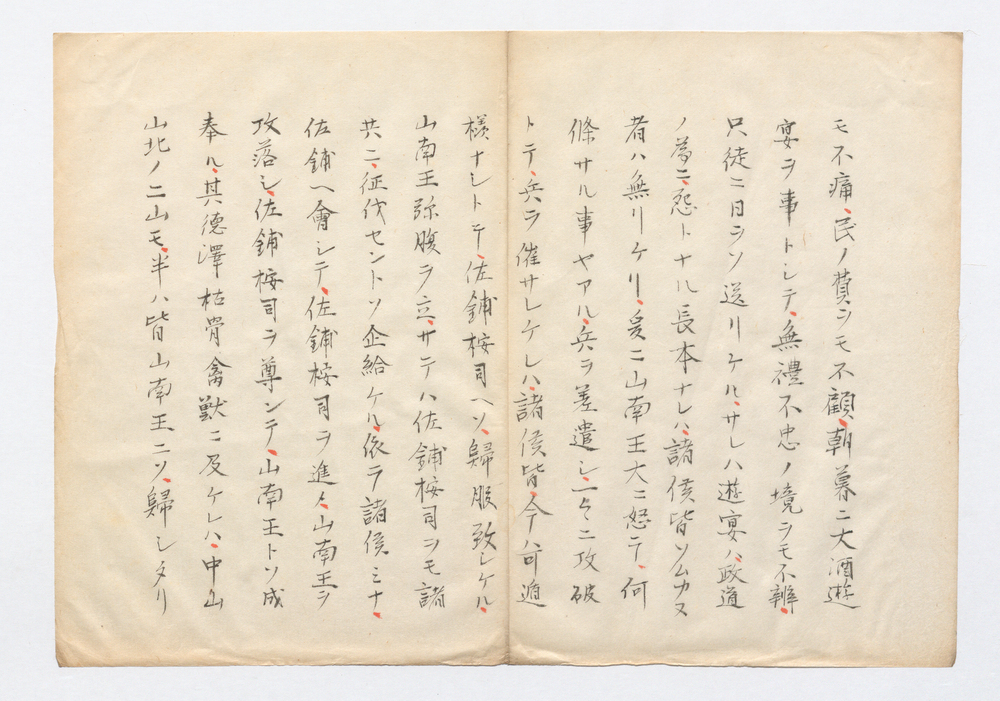 モ不痛、民ノ費ヲモ不顧、朝暮ニ大酒遊
宴ヲ事トシテ、無禮不忠ノ境ヲモ不辨、
只徒ニ日ヲソ送リケル、サレハ遊宴ハ、政道
ノ為ニ、怨トナル長本ナレハ、諸侯皆ソムカヌ
者ハ無リケリ、爰ニ山南王大ニ怒テ、何
條サル事ヤアル、兵ヲ差遣シ、一々ニ攻破
トテ、兵ヲ催サレケレハ、諸侯皆、今ハ可遁
樣ナシトテ、佐鋪桉司ヘソ、歸服致シケル、
山南王弥腹ヲ立、サテハ佐鋪桉司ヲモ諸
共ニ、征伐セントソ企給ケル、依テ諸侯ミナ、
佐鋪ヘ會シテ、佐鋪桉司ヲ進メ、山南王ヲ
攻落シ、佐鋪桉司ヲ尊ンテ、山南王トソ成
奉ル、其德澤枯骨禽獣ニ及ケレハ、中山
山北ノ二山モ、半ハ皆山南王ニソ、歸シタリ